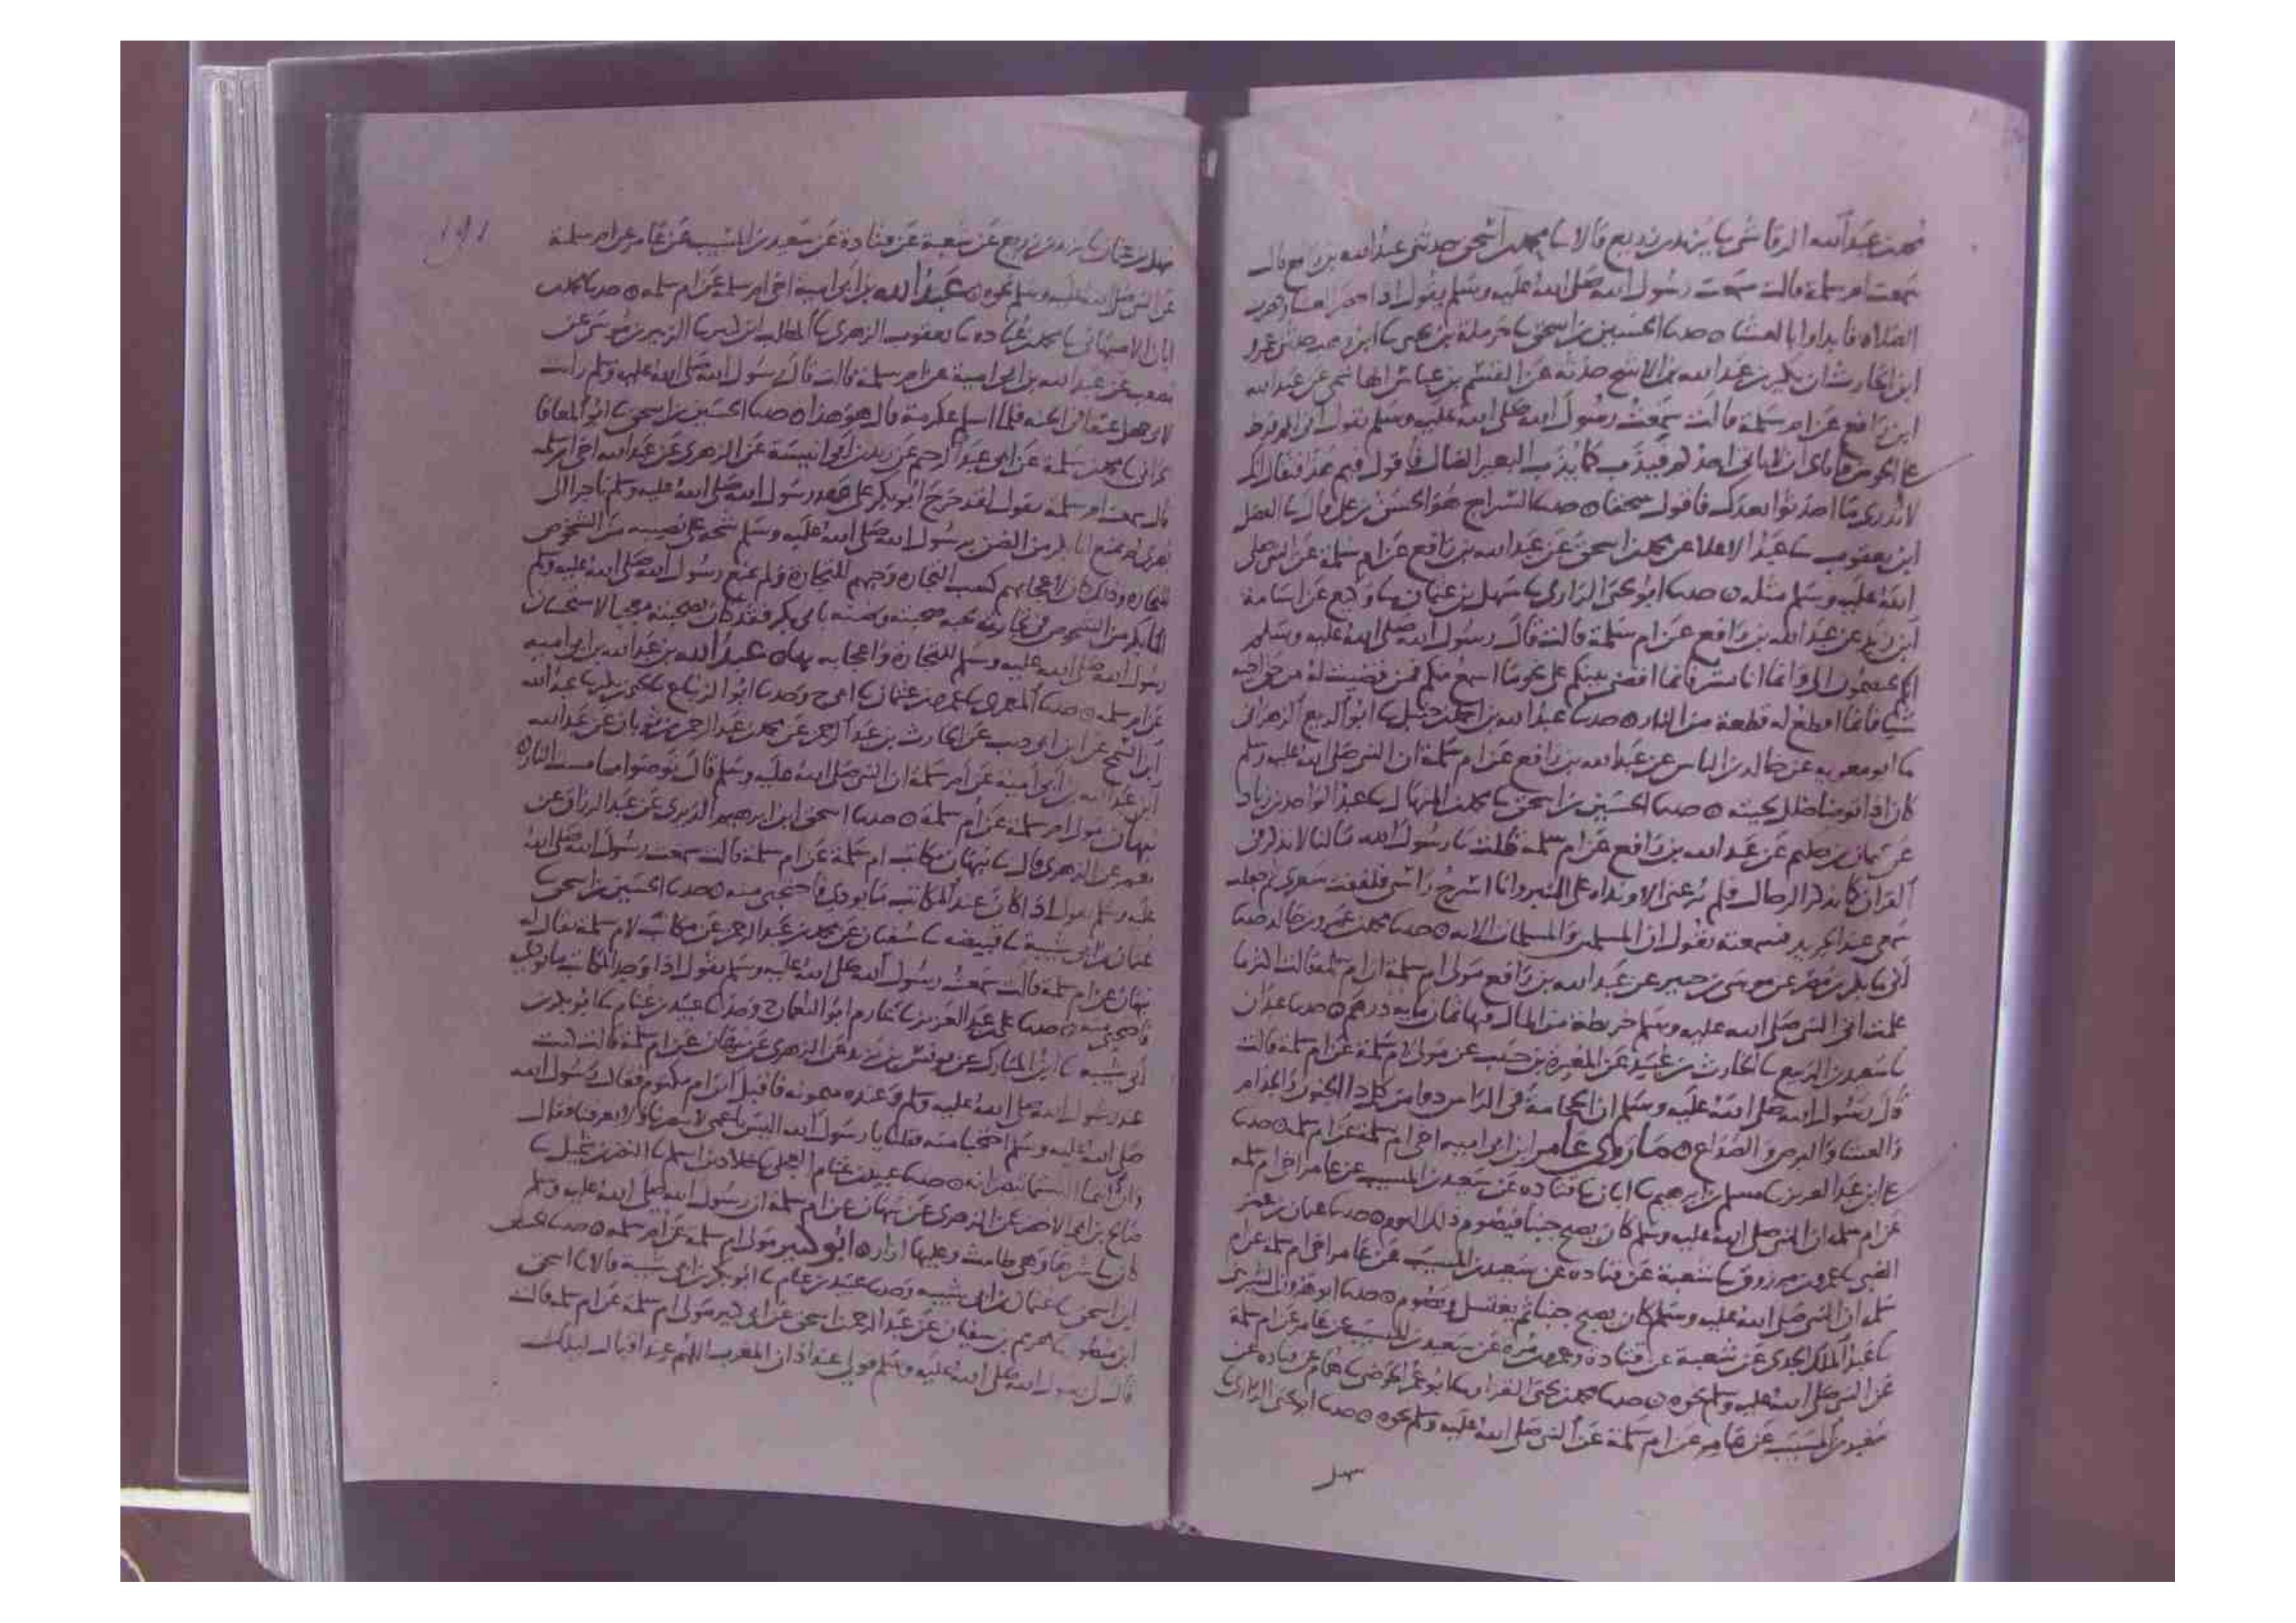 محمد بن عبد الله الرقاشي نا يزيد بن زريع قالا نا محمد بن اسحق حدثني عبد الله بن رافع قال
سمعت ام سلمة قالت سمعت رسول الله صلى الله عليه وسلم يقول اذا حضر العشا وحضرت
الصلاة فابداوا بالعشا ٥ حدثنا الحسين بن اسحق نا حرملة بن يحيى نا ابن وهب حدثني عمرو
ابن الحارث ان بكير بن عبد الله بن الاشج حدثه عن القسم بن عباس الهاشمي عن عبد الله
ابن رافع عن ام سلمة قالت سمعت رسول الله صلى الله عليه وسلم يقول اني لكم فرط
على الحوض فاياي ان ياتي احدكم فيذب كما يذب البعير الضال فاقول فيم هذا فيقال انك
لا تدري ما احدثوا بعدك فاقول سحقا ٥ حدثنا السراج هو الحسن بن علي قال نا الفضل
ابن يعقوب نا عبد الاعلا عن محمد بن اسحق عن عبد الله بن رافع عن ام سلمة عن النبي صلى
الله عليه وسلم مثله ٥ حدثنا ابو يحيى الرازي نا سهل بن عثمان نا وكيع عن اسامة
ابن زيد عن عبد الله بن رافع عن ام سلمة قالت قال رسول الله صلى الله عليه وسلم
انكم تختصمون الي وانما انا بشر فانما اقضي بينكم على نحو ما اسمع منكم فمن قضيت له من حق اخيه
شيا فانما اقطع له قطعة من النار ٥ حدثنا عبد الله بن احمد بن حنبل نا ابو الربيع الزهراني
نا ابو معوية عن خالد بن الياس عن عبد الله بن رافع عن ام سلمة ان النبي صلى الله عليه وسلم
كان اذا توضا خلل لحيته ٥ حدثنا الحسين بن اسحق نا محمد بن المنهال نا عبد الواحد بن زياد
عن عثمان بن حكيم عن عبد الله بن رافع عن ام سلمة قلت يا رسول الله ما لنا لا نذكر في
القران كما يذكر الرجال فلم يرعني الا ونداه على المنبر وانا اسرح راسي فلففت شعري ثم جعلت
سمعي عند الجريد فسمعته يقول ان المسلمين والمسلمات الاية ٥ حدثنا محمد بن عمرو بن خالد حدثنا
ابي نا بكر بن مضر عن موسى بن جبير عن عبد الله بن رافع مولى ام سلمة ان ام سلمة قالت اكثر ما
علمت اتي النبي صلى الله عليه وسلم خريطة من المال فيها ثمان ماية درهم ٥ حدثنا عبدان
نا سعيد بن الربيع نا الحارث بن عبيد عن المغيرة بن حبيب عن مولى لام سلمة عن ام سلمة قالت
قال رسول الله صلى الله عليه وسلم ان الحجامة في الراس دوا من كل دا الجنون والجذام
والعشا والبرص والصداع ٥ ما روى عامر ابن ابي امية اخي ام سلمة عن ام سلمة ٥ حدثنا
علي بن عبد العزيز نا مسلم بن ابرهيم نا ابان نا قتادة عن سعيد بن المسيب عن عامر اخي ام سلمة
عن ام سلمة ان النبي صلى الله عليه وسلم كان يصبح جنبا فيصوم ذلك اليوم ٥ حدثنا عثمان بن عمر
الضبي نا عمرو بن مرزوق نا شعبة عن قتادة عن سعيد بن المسيب عن عامر اخي ام سلمة عن ام
سلمة ان النبي صلى الله عليه وسلم كان يصبح جنبا ثم يغتسل ويصوم ٥ حدثنا
نا عبد الملك الجدي عن شعبة عن قتادة وعمرو بن مرة عن سعيد بن المسيب عن عامر عن ام سلمة
عن النبي صلى الله عليه وسلم نحوه ٥ حدثنا محمد بن يحيى القزاز نا ابو عمر الحوضي نا همام عن قتادة عن
سعيد بن المسيب عن عامر عن ام سلمة عن النبي صلى الله عليه وسلم نحوه ٥ حدثنا ابو يحيى الرازي
سهل
١٩١
سهل بن عثمان نا يزيد بن زريع عن شعبة عن قتادة عن سعيد بن المسيب عن عامر عن ام سلمة
عن النبي صلى الله عليه وسلم نحوه ٥ عبد الله بن ابي امية اخي ام سلمة عن ام سلمة ٥ حدثنا محمد بن
ابان الاصبهاني نا محمد بن عبادة نا يعقوب الزهري نا المطلب بن كثير نا الزبير بن موسى عن
مصعب عن عبد الله بن ابي امية عن ام سلمة قالت قال رسول الله صلى الله عليه وسلم رايت
لابي جهل عذقا في الجنة فلما اسلم عكرمة قال هو هذا ٥ حدثنا الحسين بن اسحق نا ابو المعافا
الحراني نا محمد بن سلمة عن ابي عبد الرحيم عن زيد بن ابي انيسة عن الزهري عن عبد الله اخي ام سلمة
قال سمعت ام سلمة تقول لقد خرج ابو بكر على عهد رسول الله صلى الله عليه وسلم تاجرا الى
بصرى لم يمنع ابا بكر من الضن برسول الله صلى الله عليه وسلم شحه على نصيبه من الشخوص
للتجارة وذلك كان اعجابهم كسب التجارة وحبهم للتجارة ولم يمنع رسول الله صلى الله عليه وسلم
ابا بكر من الشخوص في تجارته لحبه صحبته وضنه بابي بكر فقد كان بصحبته معجبا لاستحسان
رسول الله صلى الله عليه وسلم للتجارة واعجابه بها ٥ عبد الله بن عبد الله بن ابي امية
عن ام سلمة ٥ حدثنا المعمري نا عمرو بن عثمان نا ابي ح وحدثنا ابو الزنباع نا يحيى بن بكير نا عبد الله
ابن السمح عن ابن ابي ذيب عن الحارث بن عبد الرحمن عن محمد بن عبد الرحمن بن ثوبان عن عبد الله
ابن عبد الله بن ابي امية عن ام سلمة ان النبي صلى الله عليه وسلم قال توضئوا مما مست النار ٥
نبهان مولى ام سلمة عن ام سلمة ٥ حدثنا اسحق ابن ابرهيم الدبري عن عبد الرزاق عن
معمر عن الزهري قال نا نبهان مكاتب ام سلمة عن ام سلمة قالت سمعت رسول الله صلى الله
عليه وسلم يقول اذا كان عند المكاتب ما يودي فاحتجبي منه ٥ حدثنا الحسين بن اسحق نا
عثمان بن ابي شيبة نا قبيصة نا سفيان عن محمد بن عبد الرحمن عن مكاتب لام سلمة يقال له
نبهان عن ام سلمة قالت سمعت رسول الله صلى الله عليه وسلم يقول اذا وجد المكاتب ما يودي
فاحتجبي منه ٥ حدثنا علي بن عبد العزيز نا عارم ابو النعمان ح وحدثنا عبيد بن غنام نا ابو بكر بن
ابي شيبة نا ابن المبارك عن يونس بن يزيد عن الزهري عن نبهان عن ام سلمة قالت كنت
عند رسول الله صلى الله عليه وسلم وعنده ميمونة فاقبل ابن ام مكتوم فقال رسول الله
صلى الله عليه وسلم احتجبا منه فقلنا يا رسول الله اليس باعمى لا يبصرنا ولا يعرفنا فقال
وانتما الستما تبصرانه ٥ حدثنا عبيد بن غنام نا خلاد بن اسلم نا النضر بن شميل نا
صالح بن ابي الاخضر عن الزهري عن نبهان عن ام سلمة ان رسول الله صلى الله عليه وسلم
كان يباشرها وهي طامث وعليها ازار ٥ ابو كثير مولى ام سلمة عن ام سلمة ٥ حدثنا الحسين
ابن اسحق نا عثمان بن ابي شيبة وحدثنا عبيد بن غنام نا ابو بكر بن ابي شيبة قالا نا اسحق
ابن منصور نا هريم بن سفيان عن عبد الرحمن بن اسحق عن ابي كثير مولى ام سلمة عن ام سلمة قالت
قال لي رسول الله صلى الله عليه وسلم قولي عند اذان المغرب اللهم عند اقبال ليلك